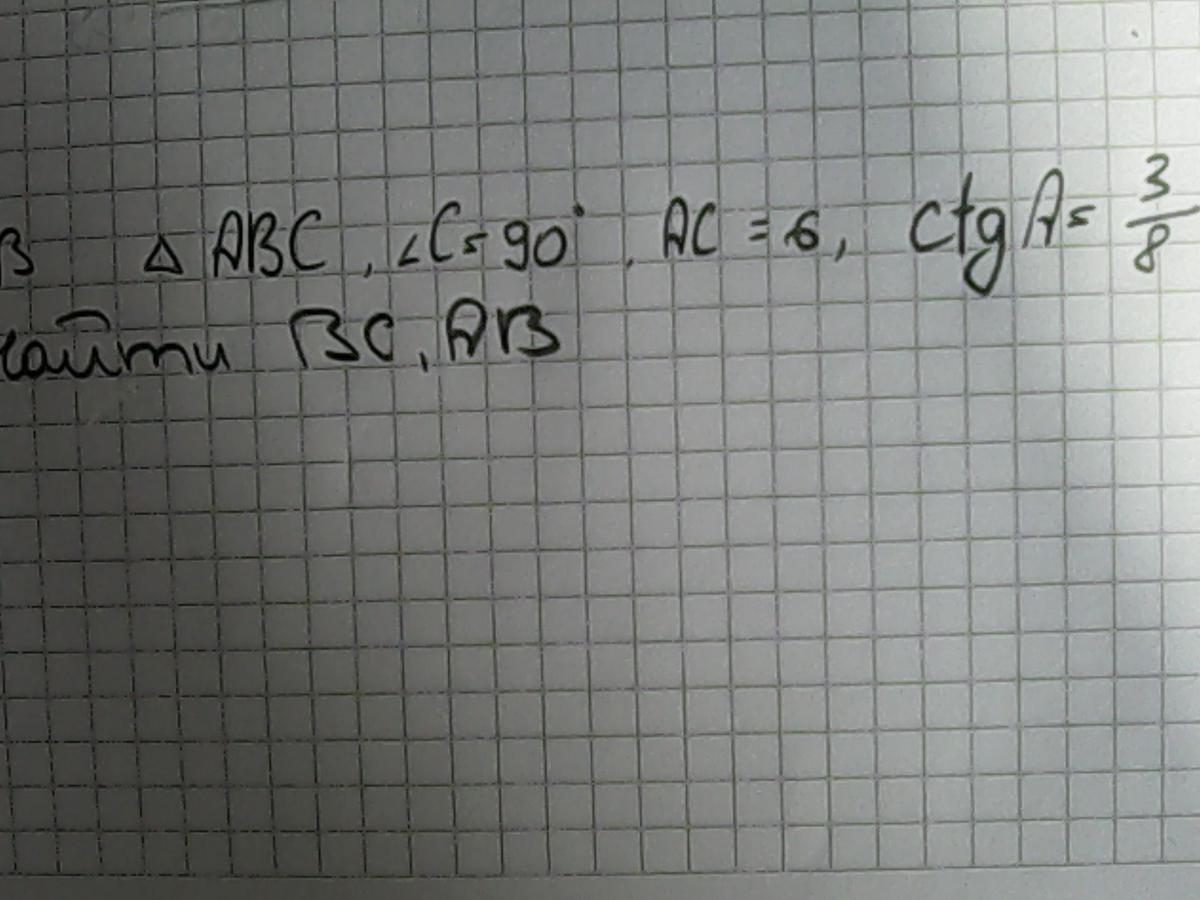 В △ ABC, ∠C = 90°, AC = 6, ctg A = 3/8
найти BC, AB